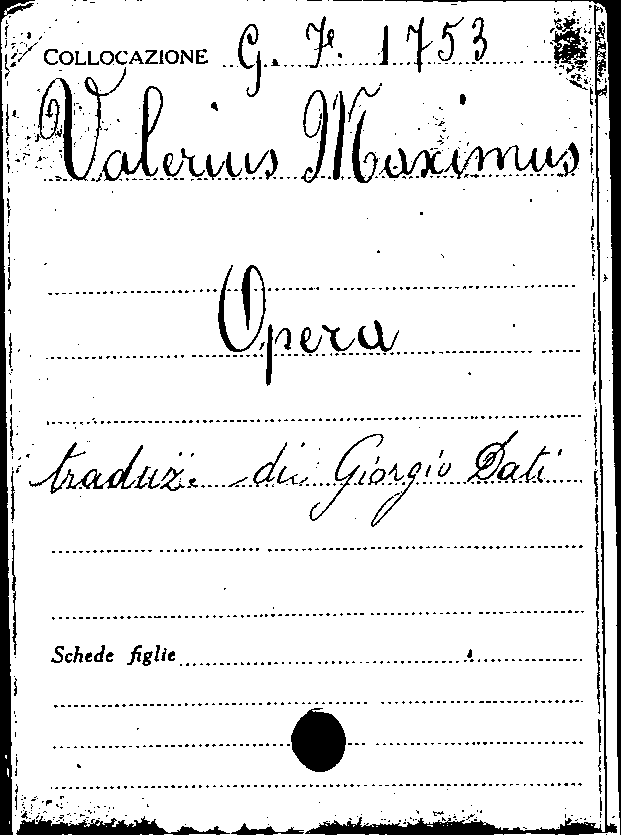 COLLOCAZIONE G. F. 1753
Valerius Maximus
Opera
traduz. di Giorgio Dati
Schede figlie